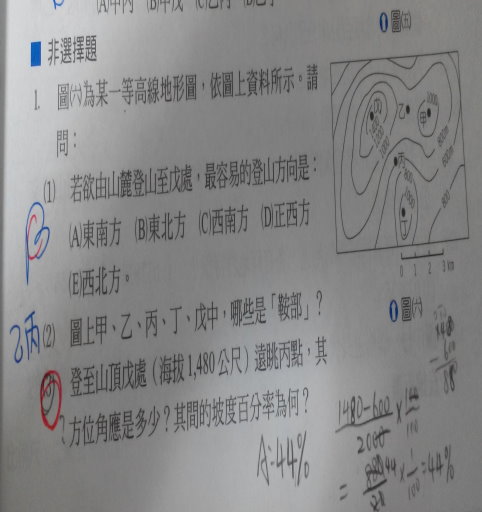 (A)甲丙 (B)甲戊 (C)乙丙
❶圖㈤
非選擇題
1. 圖㈥為某一等高線地形圖，依圖上資料所示。請
問：
(1) 若欲由山麓登山至戊處，最容易的登山方向是：
(A)東南方 (B)東北方 (C)西南方 (D)正西方
(E)西北方。
B
(2) 圖上甲、乙、丙、丁、戊中，哪些是「鞍部」？
乙丙
登至山頂戊處（海拔1,480公尺）遠眺丙點，其
方位角應是多少？其間的坡度百分率為何？
A:44%
乙
甲
丙
1000
800m
600m
0 1 2 3 km
❶圖㈥
1480-600
2000
× 100
100
= 44%